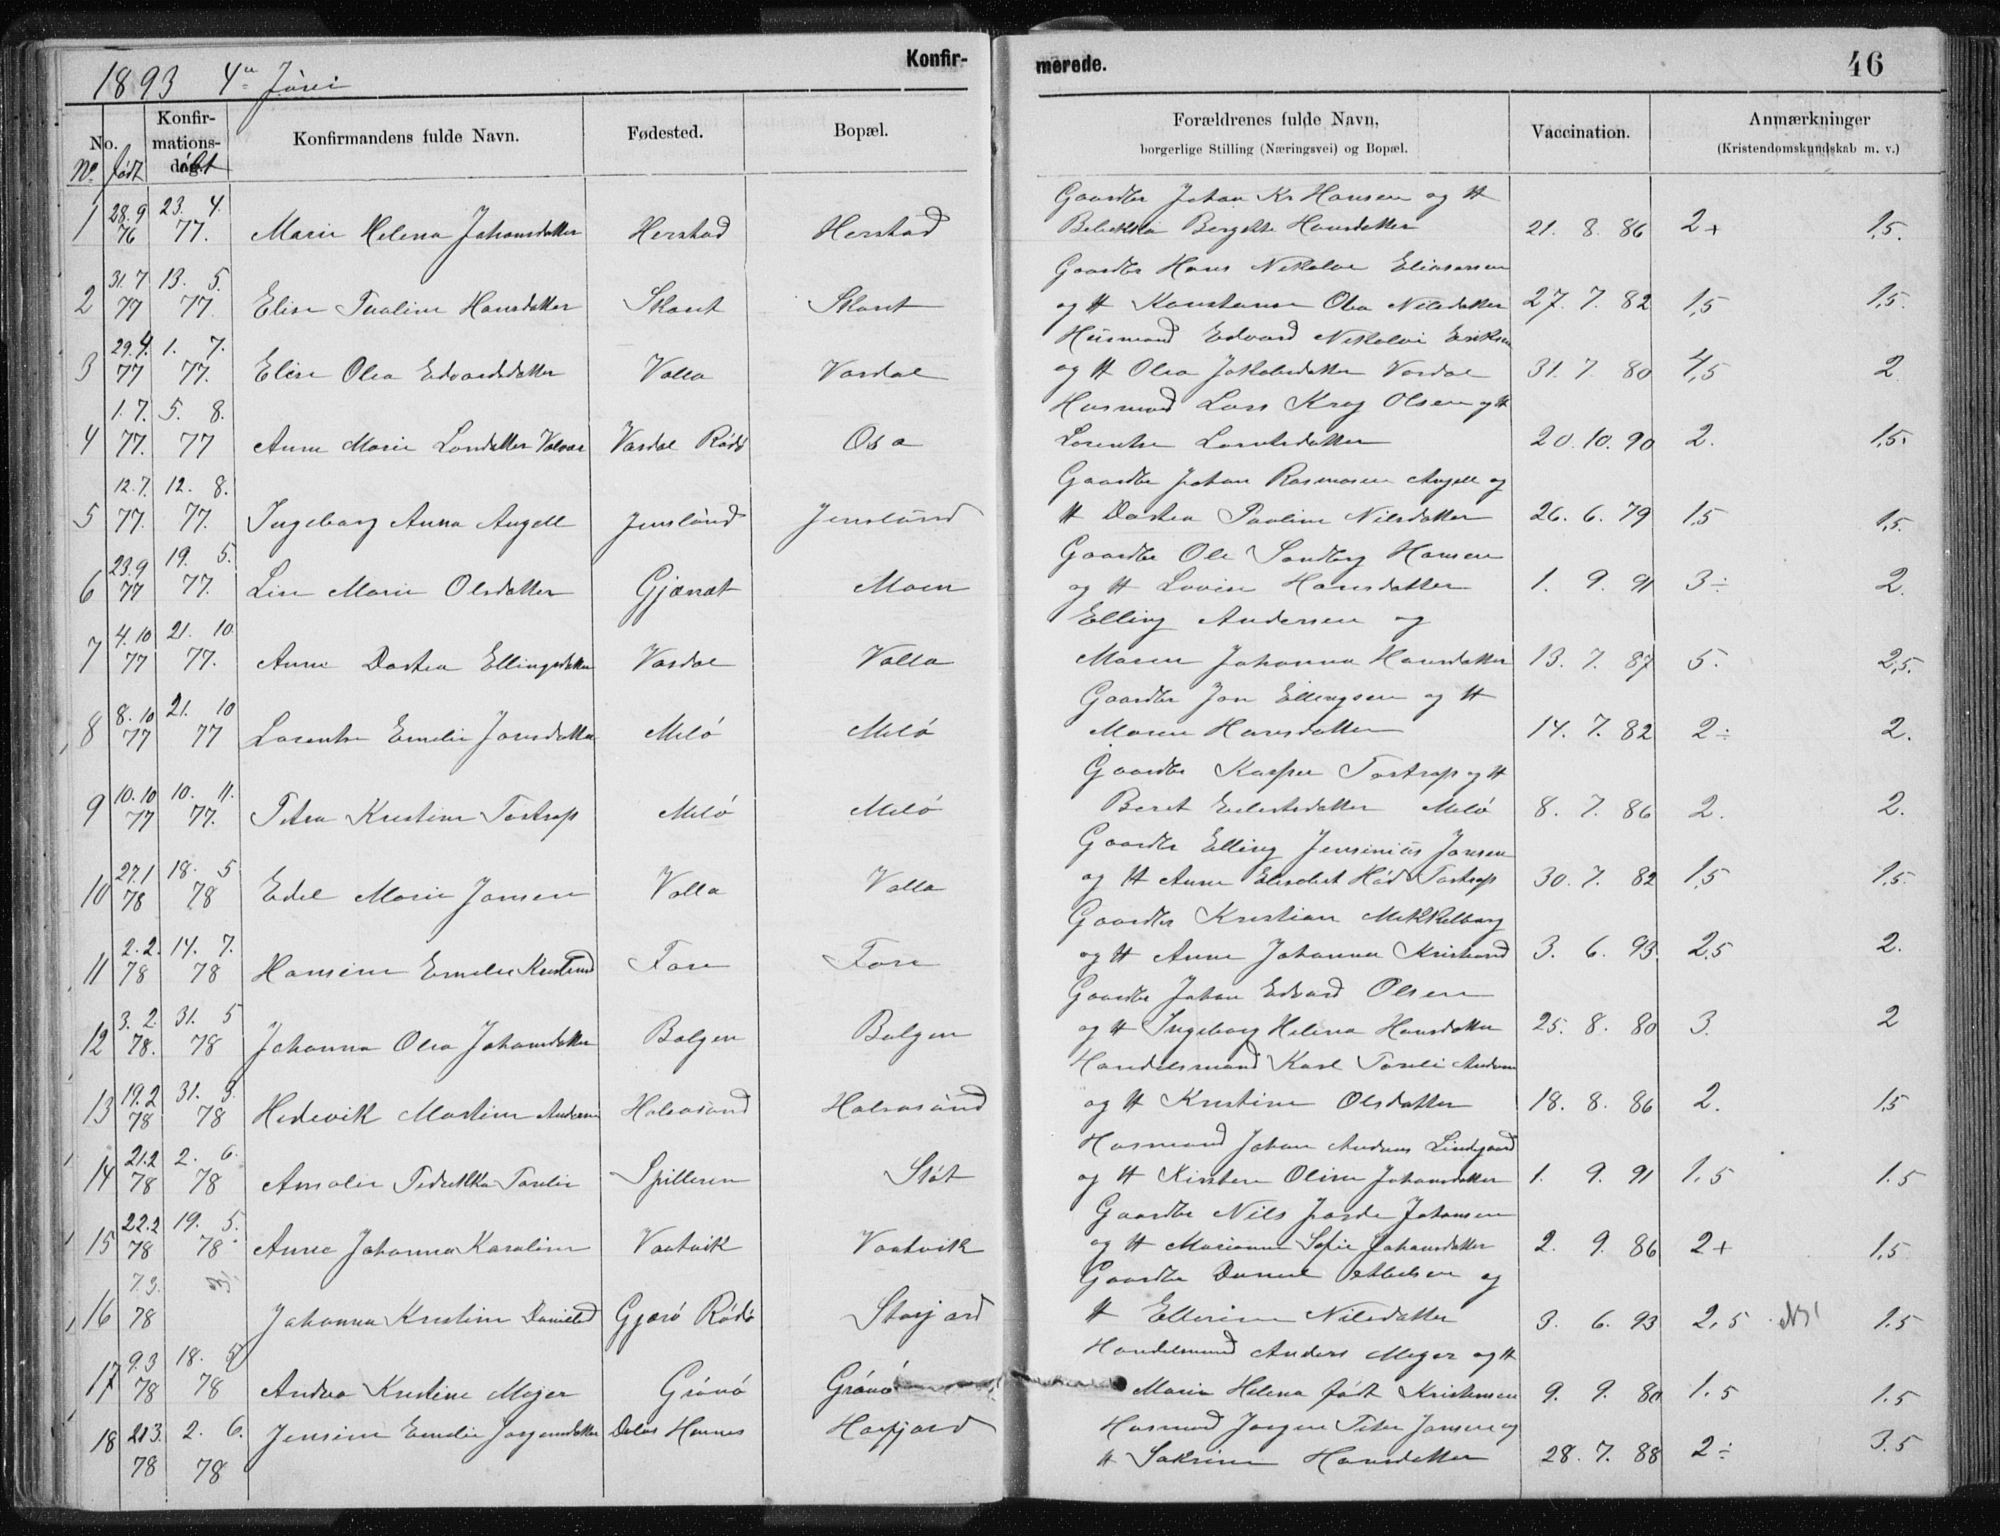 1893 4de Juni
Konfir-
merede.
46
No.
Konfir-
mations-
dag.
Konfirmandens fulde Navn.
Fødested.
Bopæl.
Forældrenes fulde Navn,
borgerlige Stilling (Næringsvei) og Bopæl.
Vaccination.
Anmærkninger
(Kristendomskundskab m. v.)
No født døbt
28.9 23. 4. Gaardbr Johan Kr Hansen og H
1 76 77. Marie Helena Johansdatter Herstad Herstad Bergitte Hansdatter 21. 8. 86 2+ 1,5.
31.7 13. 5. Gaardbr Hans Nikolai Eliasensen
2 77 77. Elise Pauline Hansdatter Skaret Skaret og H Konstanse Olea Nilsdatter 27. 7. 82 1,5 1,5.
29.4. 1. 7. Husmand Edvard Nikolai Eriksen
3 77 77. Elise Olea Edvardsdatter Valla Vardal og H Olea Jakobsdatter Vardal 31. 7. 80 4,5 2.
1.7. 5. 8. Husmand Lars Krog Olsen og H
4 77. 77 Anne Marie Larsdatter Vardal Rødø Osa Lorentse Larentsdatter 20. 10. 90 2. 1,5.
12.7. 12. 8. Gaardbr Johan Rasmusen Angell og
5 77. 77. Ingeborg Anna Angell Jenslund Jenslund H Dortea Pauline Nilsdatter 26. 6. 79 1,5 1,5.
23.9 19. 5. Gaardbr Ole Sandberg Hansen
6 77 77. Lise Marie Olsdatter Gjærset Moen og H Lovise Hansdatter 1. 9. 91 3÷ 2.
4.10 21. 10. Elling Andersen og
7 77 77. Anne Dortea Ellingsdatter Vardal Valla Maren Johanna Hansdatter 13. 7. 87 5. 2,5.
8.10 21. 10 Gaardbr Jon Ellingsen og H
8 77 77 Lorentse Emelie Jonsdatter Melø Melø Maren Hansdatter 14. 7. 82 2÷ 2.
10.10 10. 11. Gaardbr Kasper Tostrup og H
9 77 77. Petra Kristine Tostrup Melø Melø Beret Melø 8. 7. 86 2. 2.
27.1 18. 5 Gaardbr Elling Jensenius Jonsen
10 78 78 Edel Marie Jonsen Valla Valla og H Anne Elisabet Hád Tostrup 30. 7. 82 1,5 1,5.
2.2. 14. 7. Gaardbr Kristian Mikkelborg
11 78 78 Hansine Emelie Fore Fore og H Anne Johanna 3. 6. 93. 2,5 2.
3.2. 31. 5 Gaardbr Johan Edvard Olsen
12 78. 78 Johanna Olea Johansdatter Bolgen Bolgen og H Ingeborg Helena Hansdatter 25. 8. 80 3. 2
19.2 31. 3. Handelsmand Karl Andersen
13 78 78 Hedevik Martine Andersen Halsosund Halsosund og H Kristine Olsdatter 18. 8. 86 2. 1,5
21.2 2. 6. Husmand Johan Andreas Lindgaard
14 78 78 Amalie Fredrikka Spilleren Støt og H Kirsten Oline Johansdatter 1. 9. 91 1,5 1.5
22.2 19. 5. Gaardbr Nils Johansen
15 78 78. Anna Johanna Karoline Vaatvik Vaatvik og H Marianne Sofie Johansdatter 2. 9. 86 2+ 1,5
7.3. Gaardbr Daniel og
16 78 Johanna Kristine Danielsd Gjærø Rødø Storjord H Ellerine Nilsdatter 3. 6. 93 2,5 1.5
9.3 18. 5 Handelsmand Anders Mejer og H
17 78 78 Andrea Kristine Mejer Grønø Grønø Marie Helena født Kristensen 9. 9. 80 1.5 1.5
21.3. 2. 6. Husmand Jørgen Peter Jansen og
18 78 78 Jensine Emelie Jørgensdatter Dalos Hornes Holfjord H Sakrine Hansdatter 28. 7. 88 2÷ 3.5